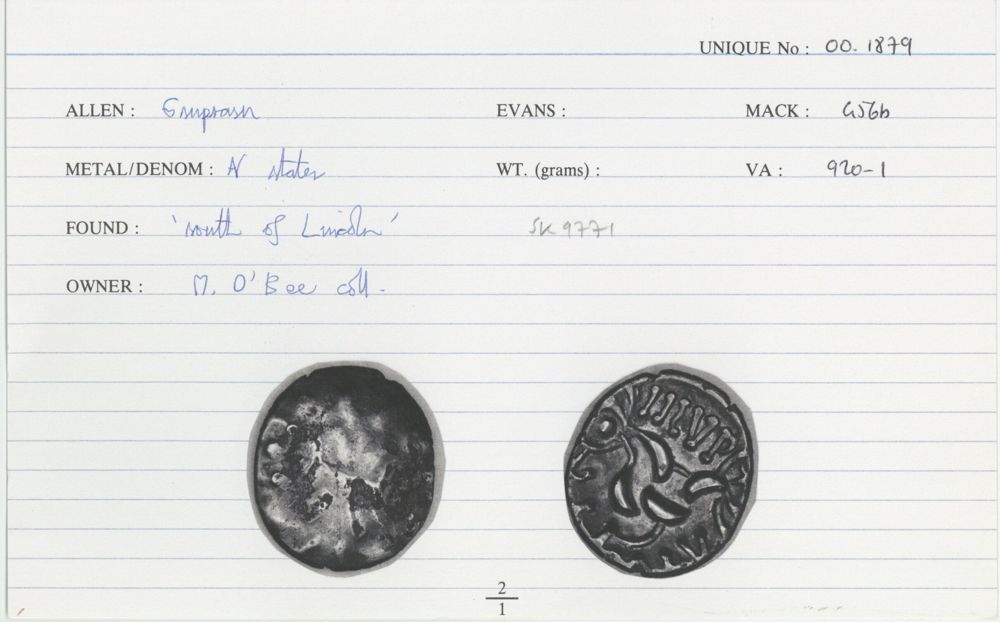 UNIQUE No : 00. 1879
ALLEN : Esuprasu EVANS : MACK : 456b
METAL/DENOM : N stater WT. (grams) : VA : 920-1
FOUND : 'south of Lincoln' SK 9771
OWNER : M. O'Bee coll.
IIIVP
2
1